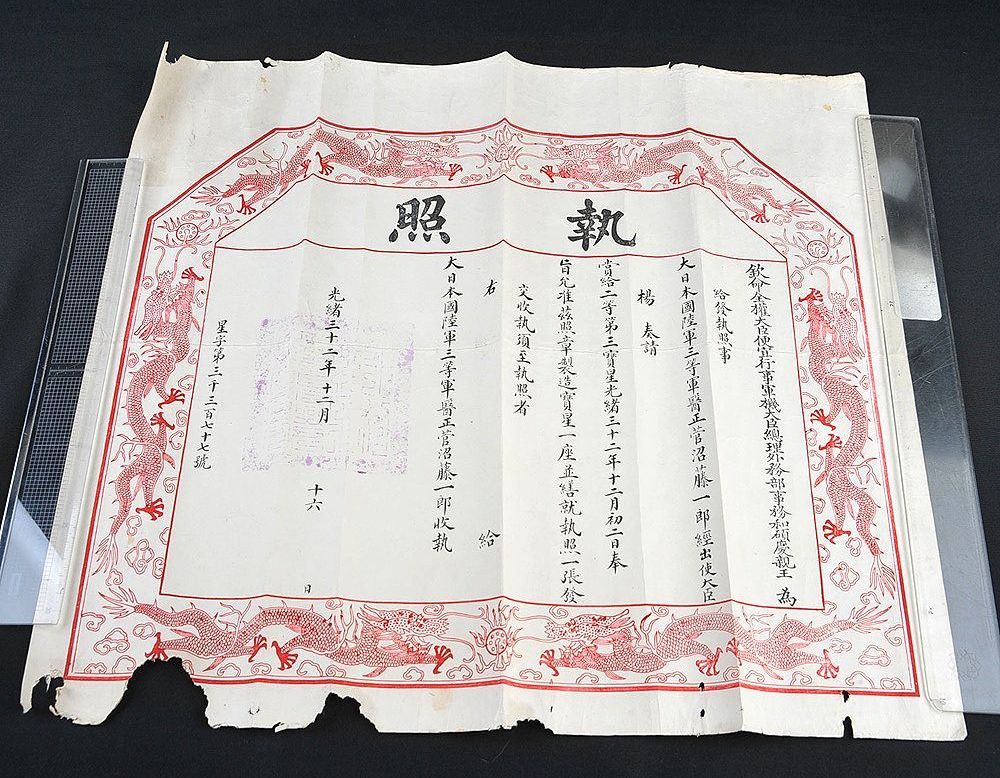 執照
欽命全權大臣便宜行事軍機大臣總理外務部事務和碩慶親王 為
給發執照事
大日本國陸軍三等軍醫正菅沼藤一郎經出使大臣
楊 奏請
賞給二等第三寶星光緒三十二年十二月初二日奉
旨允准茲照章製造寶星一座並繕就執照一張發
交收執須至執照者
右 給
大日本國陸軍三等軍醫正菅沼藤一郎收執
光緒三十二年 十二月 十六 日
星字第三千三百七十七號